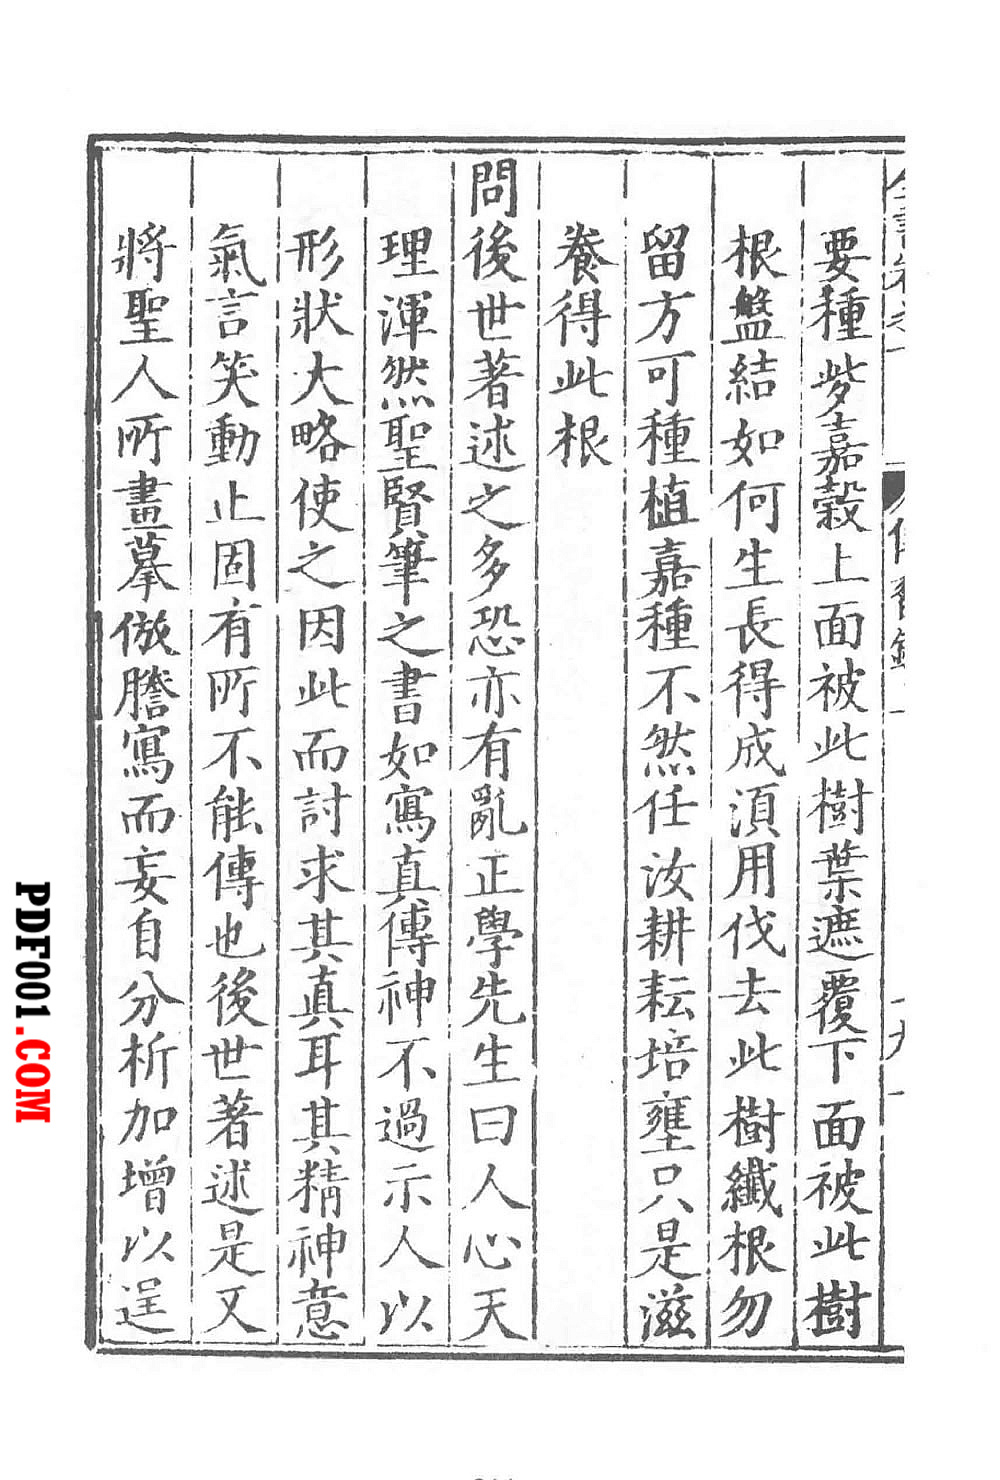 要種此嘉穀上面被此樹葉遮覆下面被此樹
根盤結如何生長得成須用伐去此樹纖根勿
留方可種植嘉種不然任汝耕耘培壅只是滋
養得此根
問後世著述之多恐亦有亂正學先生曰人心天
理渾然聖賢筆之書如寫真傳神不過示人以
形狀大略使之因此而討求其真耳其精神意
氣言笑動止固有所不能傳也後世著述是又
將聖人所畫摹倣謄寫而妄自分析加增以逞
PDF001.COM